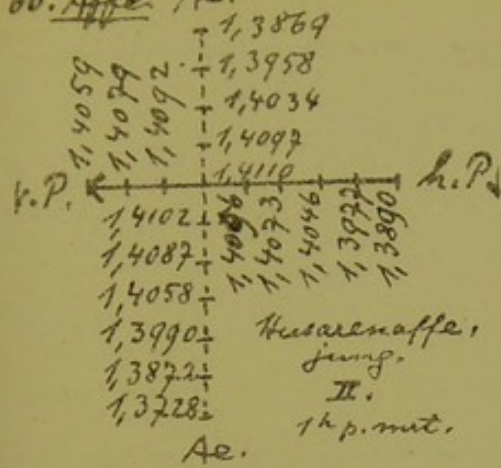 Ae.
1,3869
1,3958
1,4034
1,4097
1,4110
1,4059
1,4079
1,4092
v.P.
h.P.
1,4073
1,4046
1,3977
1,3890
1,4102
1,4087
1,4058
1,3990
1,3872
1,3728
Husarenaffe,
jung.
II.
1h p. mrt.
Ae.